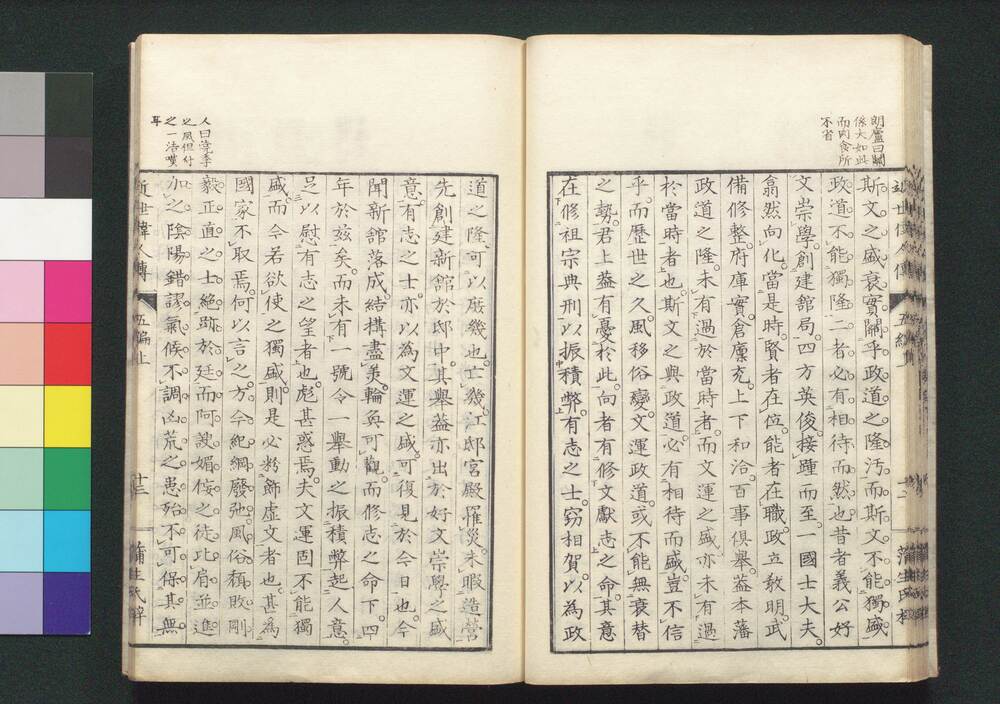 朗廬曰關
係大如此
而肉食所
不省
斯文之盛衰實關乎政道之隆汚而斯文不能獨盛
政道不能獨隆二者必有相待而然也昔者義公好
文崇學創建館局四方英俊接踵而至一國士大夫
翕然向化當是時賢者在位能者在職政立教明武
備修整府庫實倉廩充上下和洽百事俱舉蓋本藩
政道之隆未有過於當時者而文運之盛亦未有過
於當時者也斯文之與政道必有相待而盛豈不信
乎而歷世之久風移俗變文運政道或不能無衰替
之勢君上蓋有憂於此向者有修文獻志之命其意
在修祖宗典刑以振積弊有志之士竊相賀以為政
道之隆可以庶幾也亡幾江邸宮殿罹災未暇造營
先創建新館於邸中其舉蓋亦出於好文崇學之盛
意有志之士亦以為文運之盛可復見於今日也今
聞新館落成結構盡美輪奐可觀而修志之命下四
年於茲矣而未有一號令一舉動之振積弊起人意
足以慰有志之望者也彪甚惑焉夫文運固不能獨
盛而今若欲使之獨盛則是必粉飾虛文者也甚為
國家不取焉何以言之方今紀綱廢弛風俗頹敗剛
毅正直之士絕跡於廷而阿諛媚佞之徒比肩並進
加之陰陽錯謬氣候不調凶荒之患殆不可保其無
人曰澆季
之風但付
之一浩嘆
耳
近世偉人傳
五編上
十三
蒲生氏梓